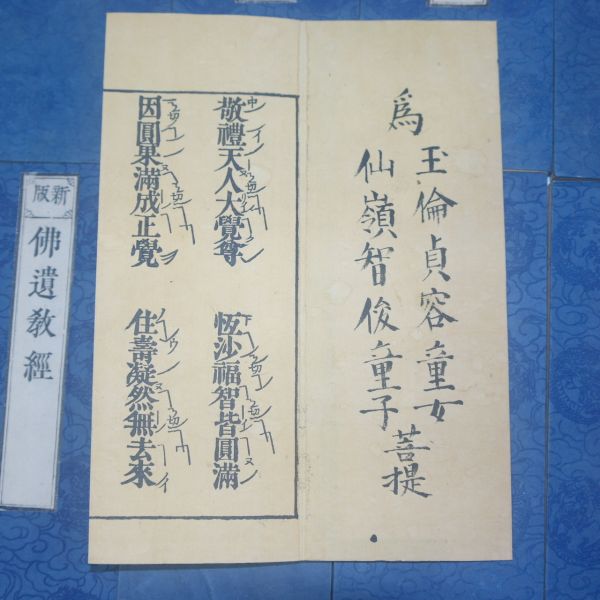 為
玉倫貞容童女
仙嶺智俊童子
菩提
敬禮天人大覺尊
恆沙福智皆圓滿
因圓果滿成正覺
住壽凝然無去來
新版
佛遺教經